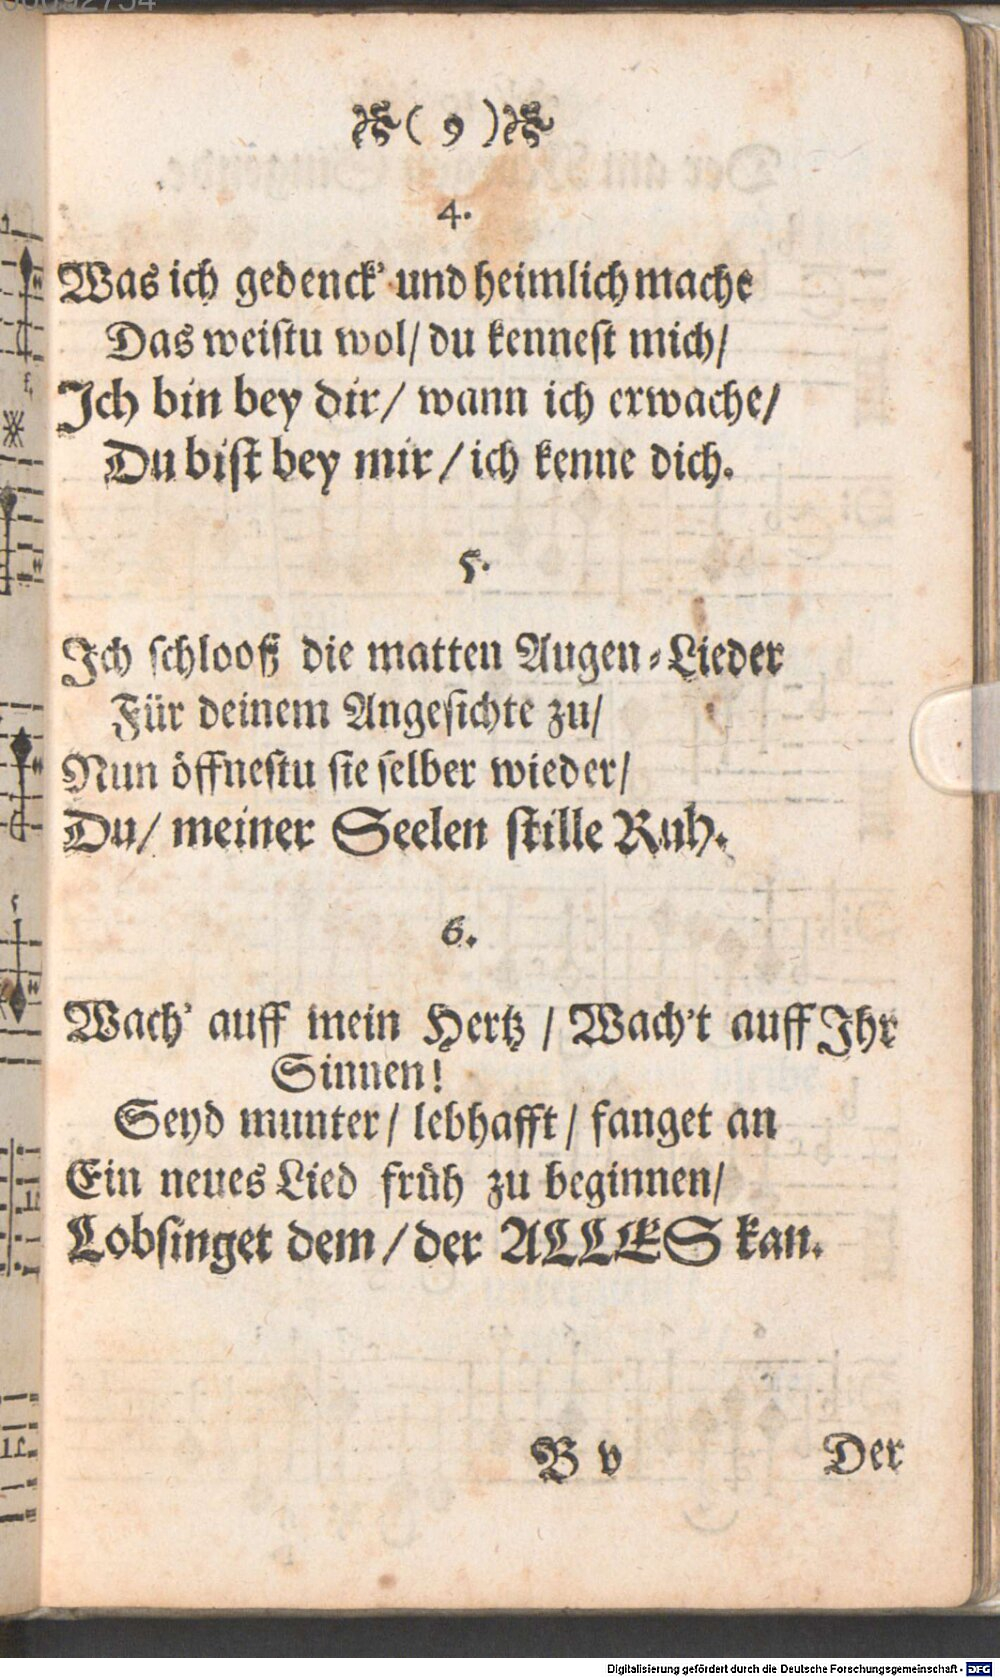 ( 9 )
4.
Was ich gedenck' und heimlich mache
Das weistu wol/ du kennest mich/
Ich bin bey dir/ wann ich erwache/
Du bist bey mir / ich kenne dich.
5.
Ich schlooß die matten Augen-Lieder
Für deinem Angesichte zu/
Nun öffnestu sie selber wieder/
Du/ meiner Seelen stille Ruh.
6.
Wach' auff mein Hertz / Wach't auff Ihr
Sinnen!
Seyd munter/ lebhafft/ fanget an
Ein neues Lied früh zu beginnen/
Lobsinget dem/ der ALLES kan.
B v
Der
Digitalisierung gefördert durch die Deutsche Forschungsgemeinschaft - DFG